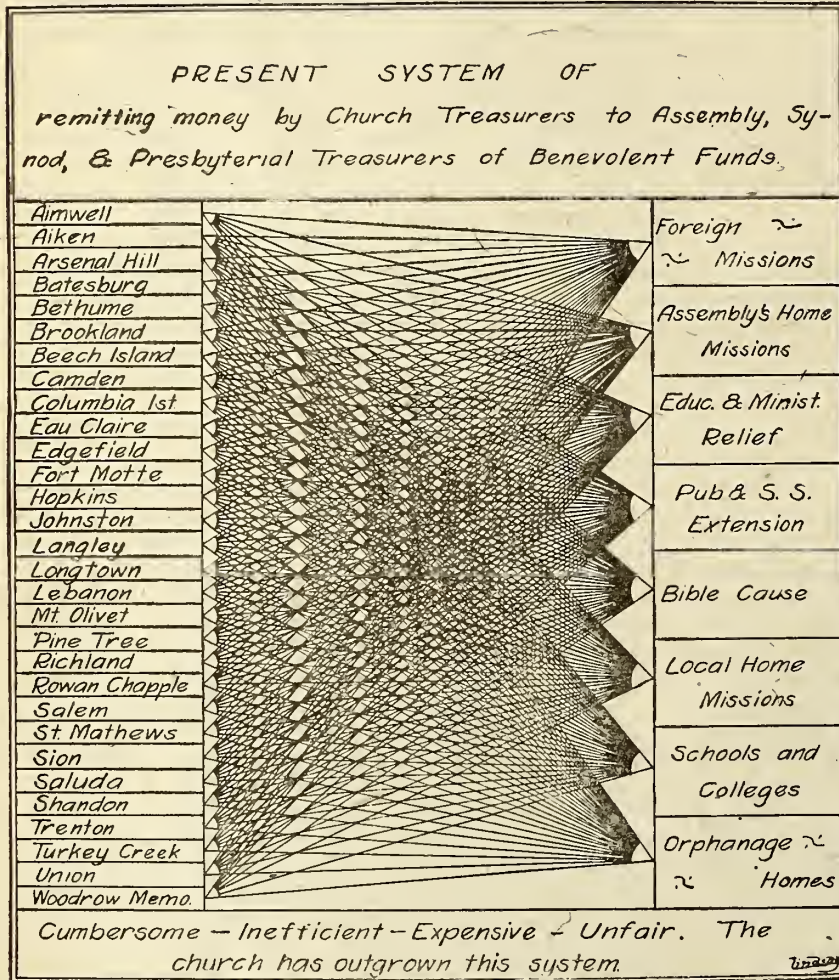 PRESENT SYSTEM OF
remitting money by Church Treasurers to Assembly, Sy-
nod, & Presbyterial Treasurers of Benevolent Funds.
Aimwell
Aiken
Arsenal Hill
Batesburg
Bethume
Brookland
Beech Island
Camden
Columbia 1st
Eau Claire
Edgefield
Fort Motte
Hopkins
Johnston
Langley
Longtown
Lebanon
Mt. Olivet
Pine Tree
Richland
Rowan Chapple
Salem
St. Mathews
Sion
Saluda
Shandon
Trenton
Turkey Creek
Union
Woodrow Memo.
Foreign
Missions
Assembly's Home
Missions
Educ. & Minist.
Relief
Pub & S. S.
Extension
Bible Cause
Local Home
Missions
Schools and
Colleges
Orphanage
Homes
Cumbersome – Inefficient – Expensive – Unfair. The
church has outgrown this system.